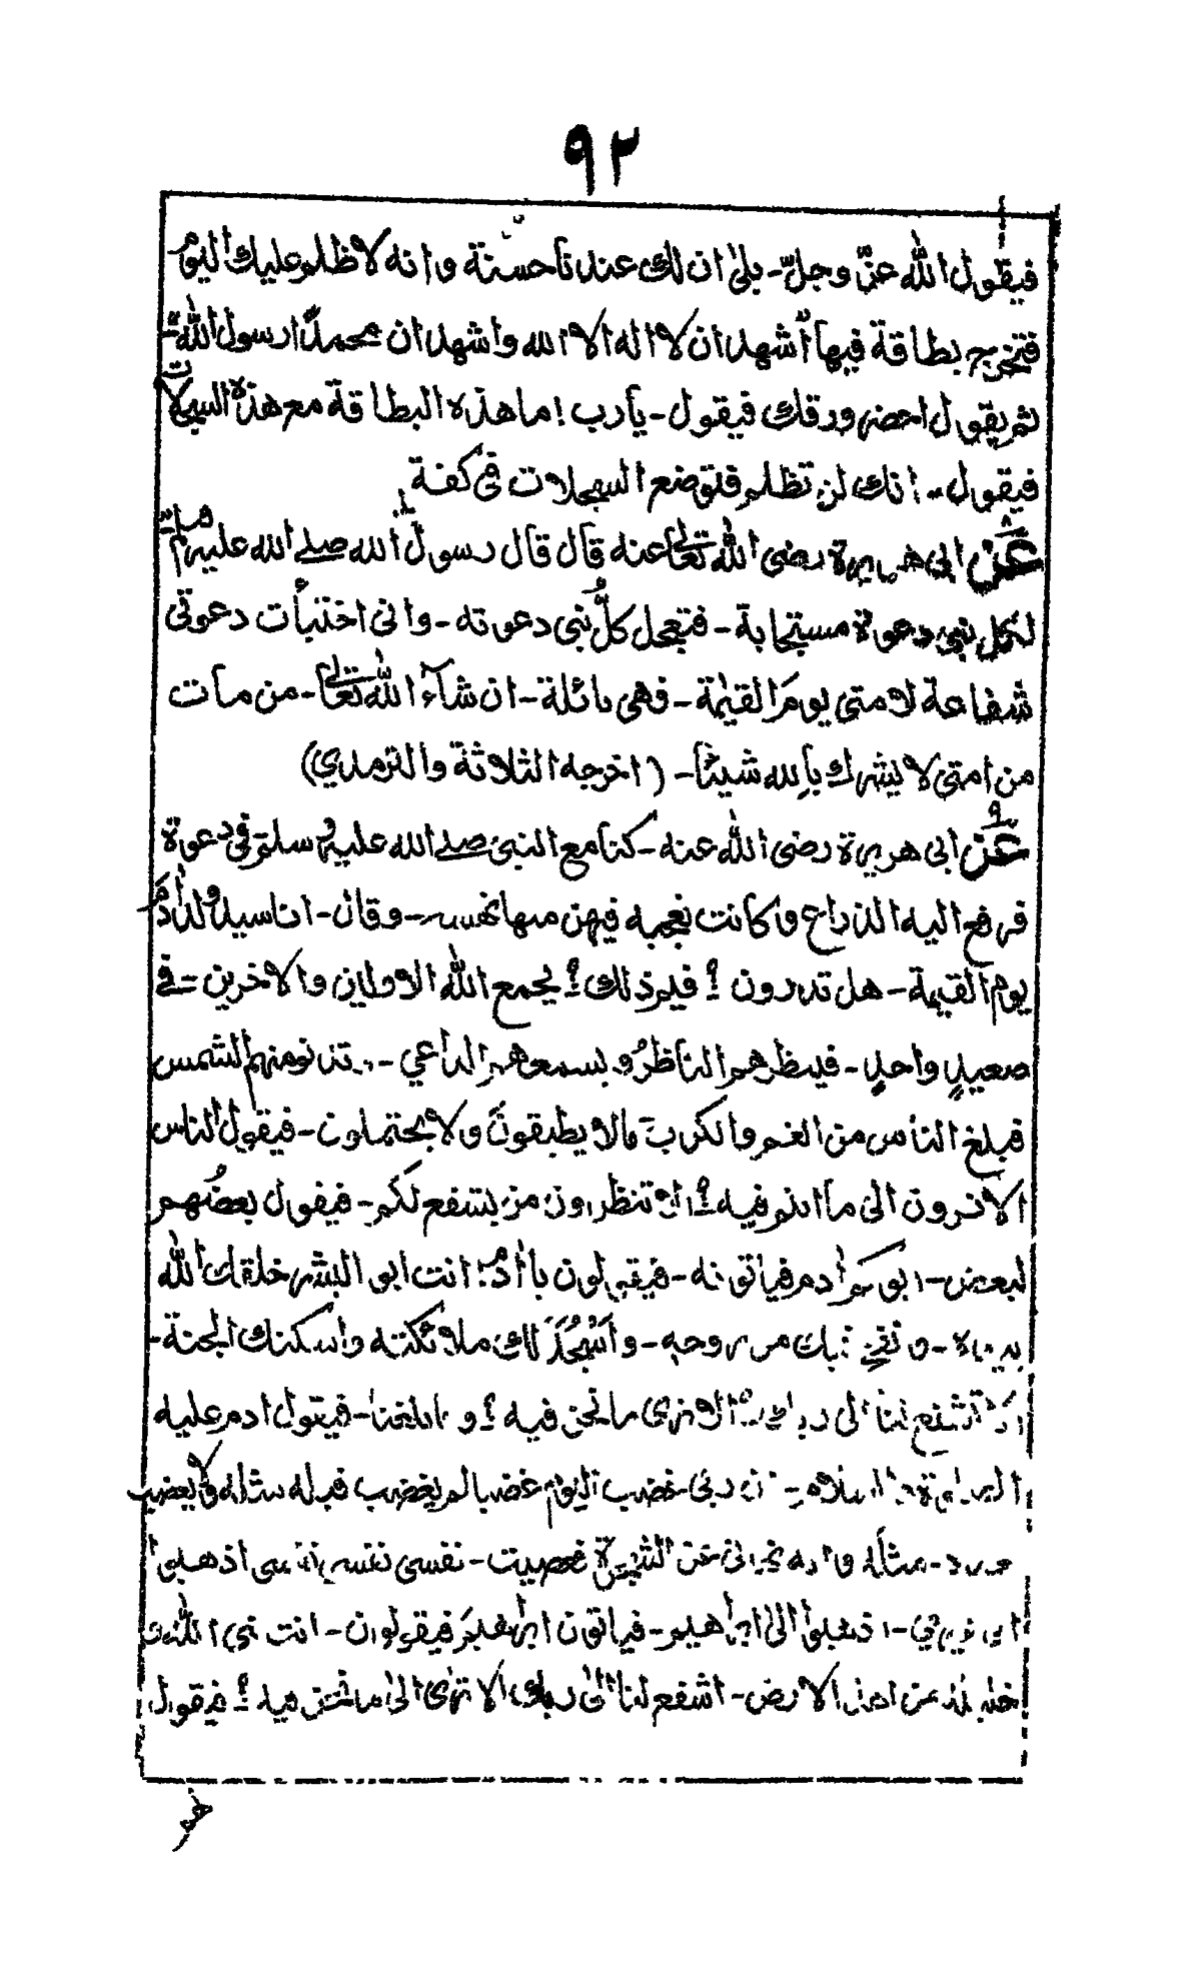 ٩٢
فيقول الله عزّ وجلّ - بلىٰ ان لك عندنا حسنة وانه لا ظلم عليك اليوم
فتخرج بطاقة فيها أشهد ان لا اله الا الله واشهد ان محمدًا رسول الله
ثم يقول احضر ورقك فيقول - يا رب! ما هذه البطاقة مع هذه السجلات
فيقول - انك لن تظلم فتوضع السجلات في كفة
٨
عن ابي هريرة رضى الله تعالىٰ عنه قال قال رسول الله صلى الله عليه وسلم
لكل نبي دعوة مستجابة - فتعجل كلُّ نبي دعوته - واني اختبأت دعوتي
شفاعة لامتي يومَ القيٰمة - فهي نائلة - ان شآء الله تعالىٰ - من مات
من امتي لا يشرك بالله شيئًا - (اخرجه الثلاثة والترمذي)
٩
عن ابي هريرة رضى الله عنه - كنا مع النبي صلى الله عليه وسلم في دعوة
فرفع اليه الذراع وكانت تعجبه فنهس منها نهسة - وقال - انا سيد ولد اٰدم
يوم القيمة - هل تدرون ؟ فيم ذلك ؟ يجمع الله الاولين والاخرين - في
صعيدٍ واحدٍ - فينظرهم الناظرُ ويسمعهم الداعي - تدنو منهم الشمس
فبلغ الناس من الغم والكرب مالا يطيقون ولا يحتملون - فيقول الناس
الا ترون الى ما انتم فيه ؟ الا تنظرون من يشفع لكم - فيقول بعضُهم
لبعض - ابوكم اٰدم فياتونه - فيقولون يا اٰدم! انت ابو البشر خلقك الله
بيده - ونفخ فيك من روحه - وأَسْجَدَ لك ملائكته واسكنك الجنة -
الا تشفع لنا الى ربك الا ترى ما نحن فيه ؟ وما بلغنا - فيقول ادم عليه
الصلوة والسلام - ان ربي غضب اليوم غضبا لم يغضب قبله مثله ولا يغضب
بعده - مثله وانه نهاني عن الشجرة فعصيت - نفسي نفسي نفسي اذهبوا
الى غيري - اذهبوا الىٰ ابراهيم - فياتون ابراهيم فيقولون - انت نبي الله و
خليله من اهل الارض - اشفع لنا الىٰ ربك الا ترىٰ الىٰ ما نحن فيه ؟ فيقول